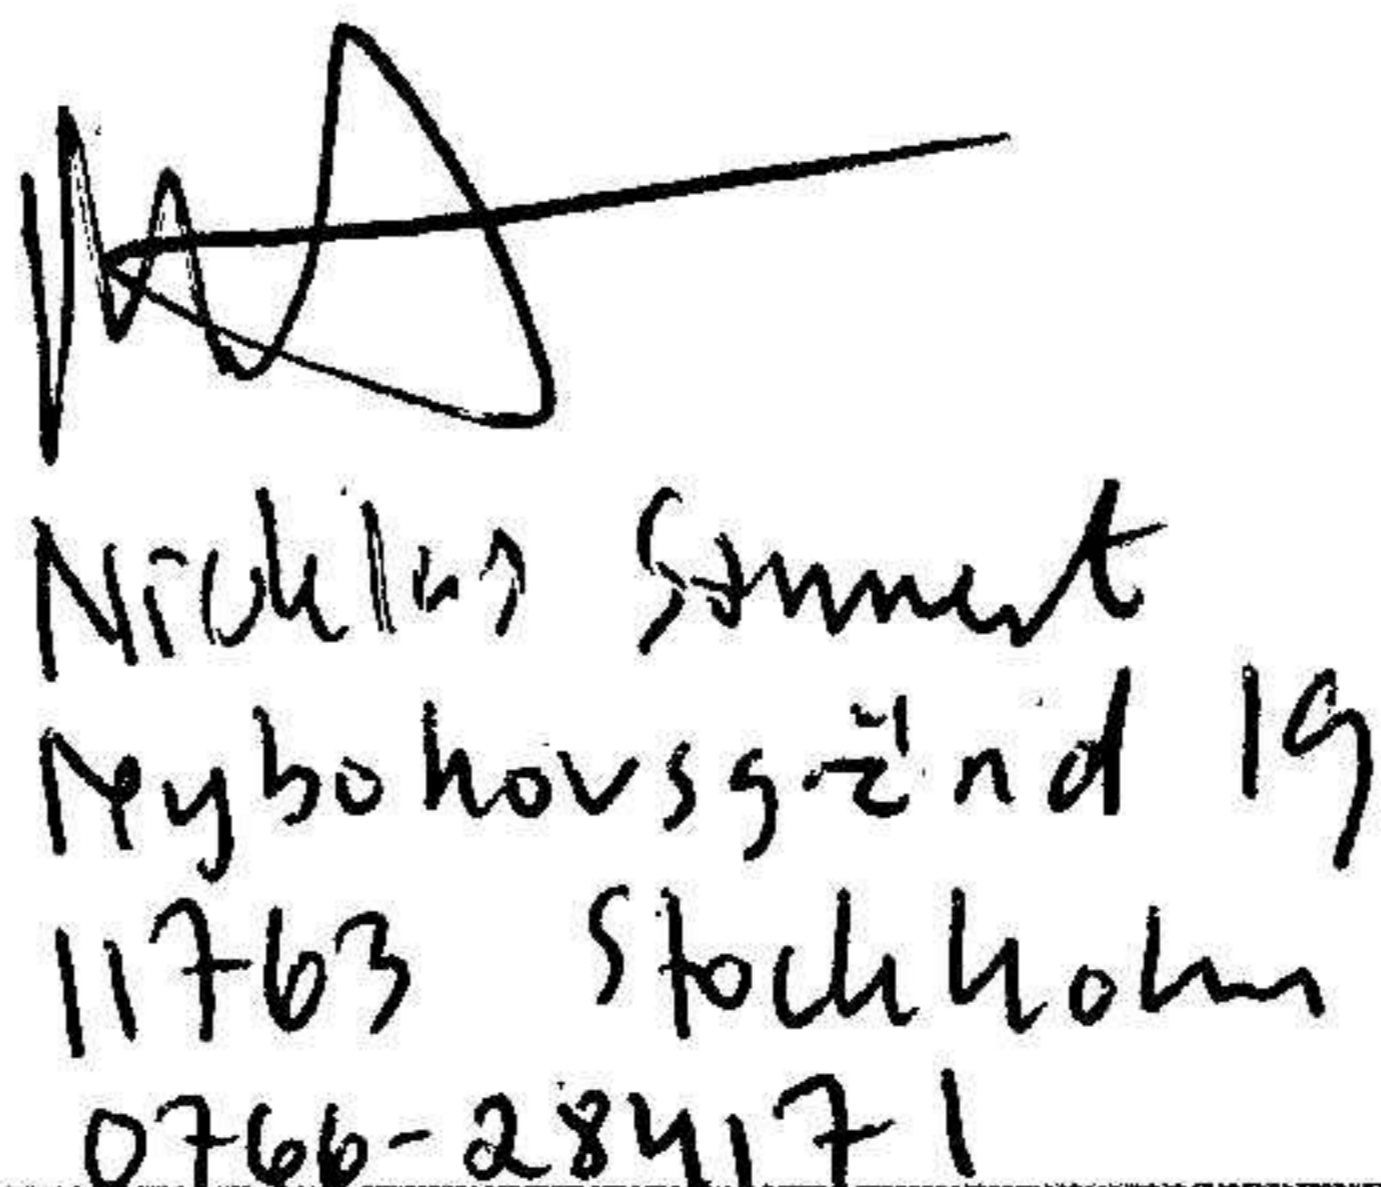 Nicklas
Nybohovsgränd 19
11763 Stockholm
0766-284171